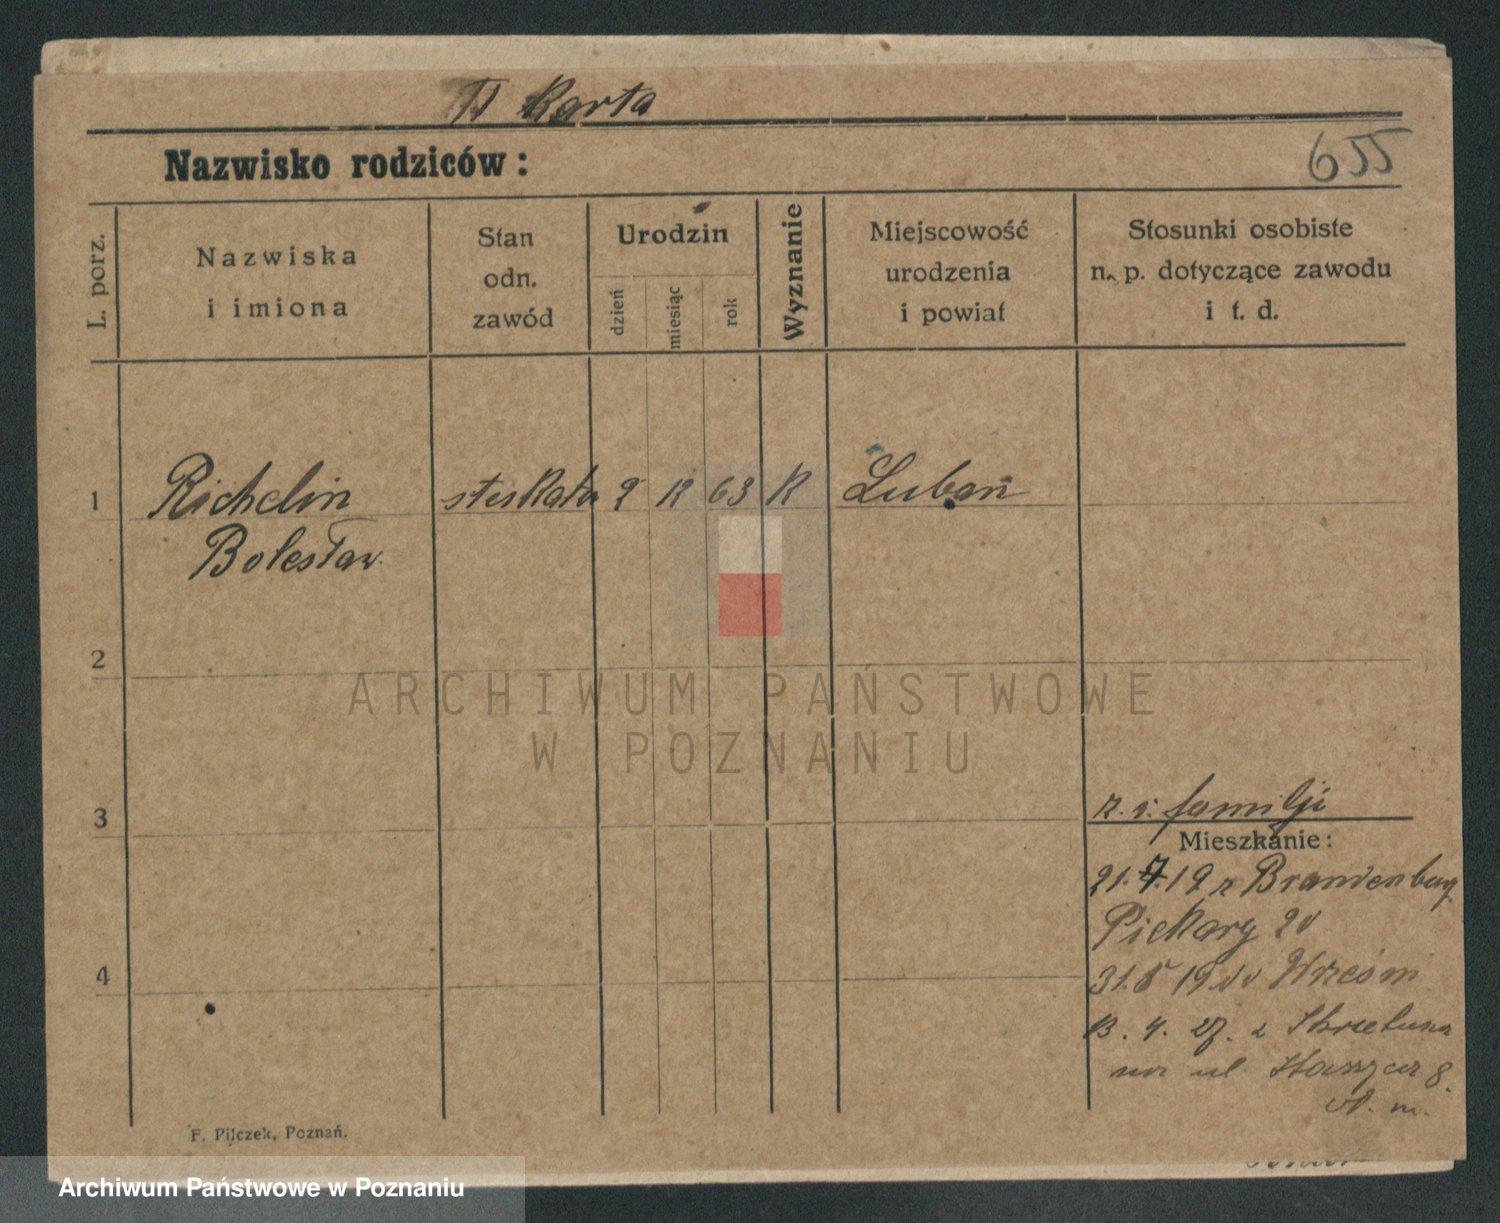 II Karta
Nazwisko rodziców:
655
L. porz.
Nazwiska
i imiona
Stan
odn.
zawód
Urodzin
dzień
miesiąc
rok
Wyznanie
Miejscowość
urodzenia
i powiat
Stosunki osobiste
n. p. dotyczące zawodu
i t. d.
1
Richelin
Bolesław
63 K Lubań
2
ARCHIWUM PAŃSTWOWE
W POZNANIU
3
familji
Mieszkanie:
21.7.19 z Brandenburg
Piekary
31.8 19 Wrześni
13. 4. 27. z
ul
8
m.
4
F. Pilczek, Poznań.
Archiwum Państwowe w Poznaniu